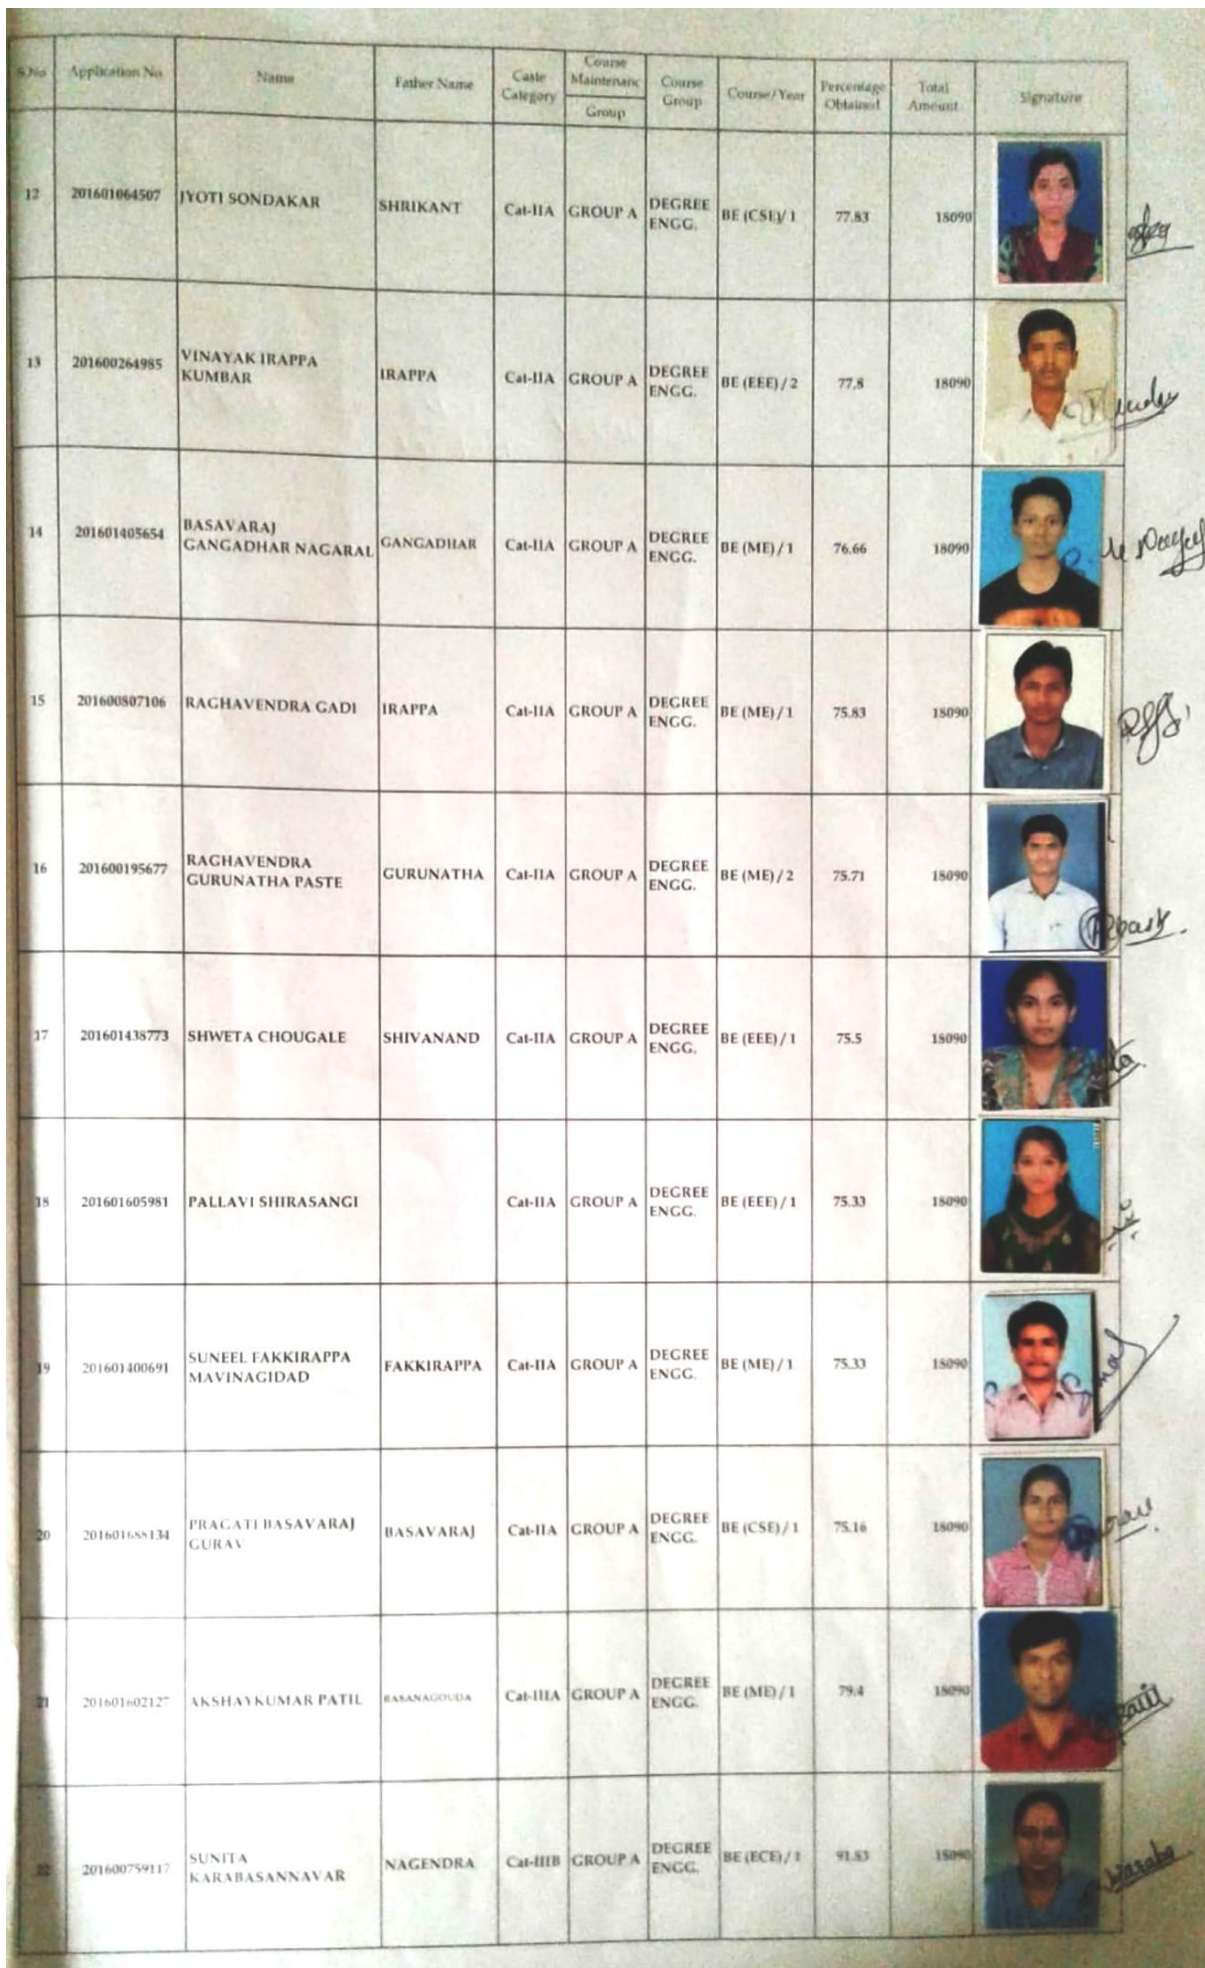 S.No Application No Name Father Name Caste Category Course Maintenanc Group Course Group Course/Year Percentage Obtained Total Amount Signature
12 201601064507 JYOTI SONDAKAR SHRIKANT Cat-IIA GROUP A DEGREE ENGG. BE (CSE)/ 1 77.83 18090
13 201600264985 VINAYAK IRAPPA KUMBAR IRAPPA Cat-IIA GROUP A DEGREE ENGG. BE (EEE) / 2 77.8 18090
14 201601405654 BASAVARAJ GANGADHAR NAGARAL GANGADHAR Cat-IIA GROUP A DEGREE ENGG. BE (ME) / 1 76.66 18090
15 201600807106 RAGHAVENDRA GADI IRAPPA Cat-IIA GROUP A DEGREE ENGG. BE (ME) / 1 75.83 18090
16 201600195677 RAGHAVENDRA GURUNATHA PASTE GURUNATHA Cat-IIA GROUP A DEGREE ENGG. BE (ME) / 2 75.71 18090
17 201601438773 SHWETA CHOUGALE SHIVANAND Cat-IIA GROUP A DEGREE ENGG. BE (EEE) / 1 75.5 18090
18 201601605981 PALLAVI SHIRASANGI Cat-IIA GROUP A DEGREE ENGG. BE (EEE) / 1 75.33 18090
19 201601400691 SUNEEL FAKKIRAPPA MAVINAGIDAD FAKKIRAPPA Cat-IIA GROUP A DEGREE ENGG. BE (ME) / 1 75.33 18090
20 201601688134 PRAGATI BASAVARAJ GURAV BASAVARAJ Cat-IIA GROUP A DEGREE ENGG. BE (CSE) / 1 75.16 18090
21 201601602127 AKSHAYKUMAR PATIL BASANAGOUDA Cat-IIIA GROUP A DEGREE ENGG. BE (ME) / 1 79.4 18090
22 201600759117 SUNITA KARABASANNAVAR NAGENDRA Cat-IIIB GROUP A DEGREE ENGG. BE (ECE) / 1 91.83 18090